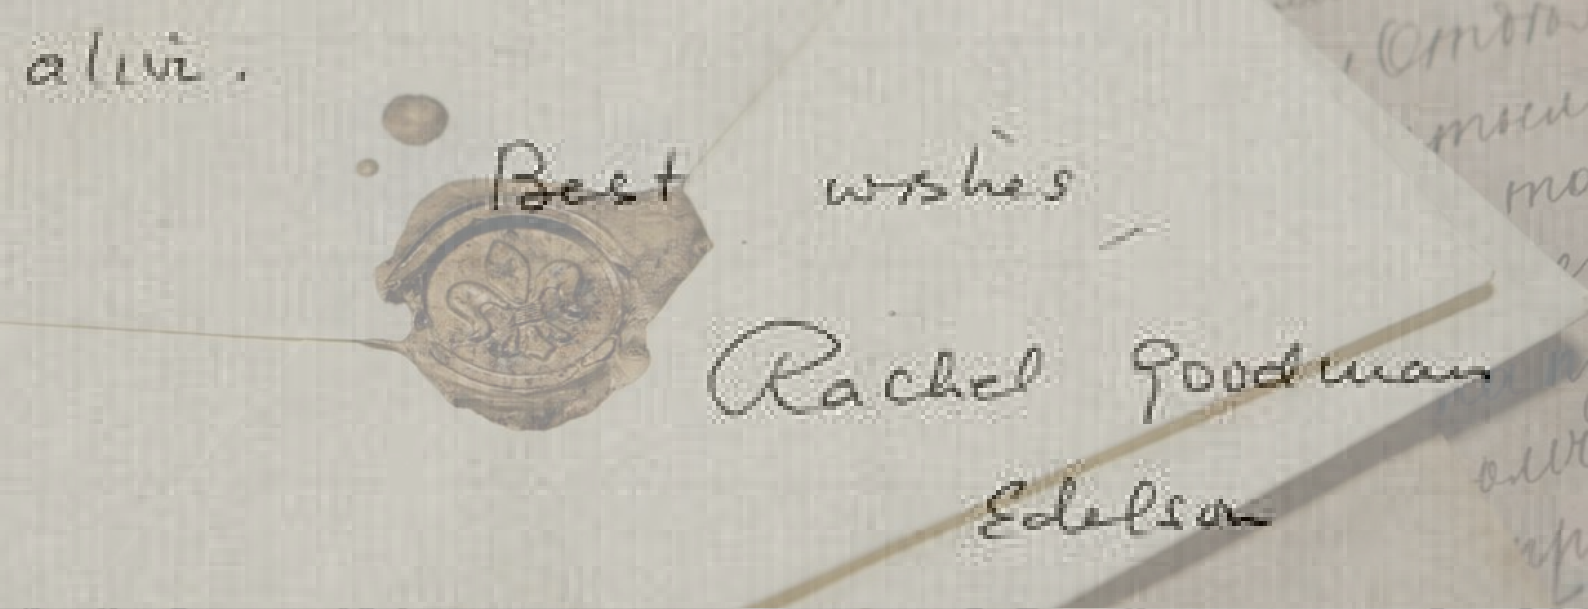 alive.
Best wishes,
Rachel Goodman
Edelson